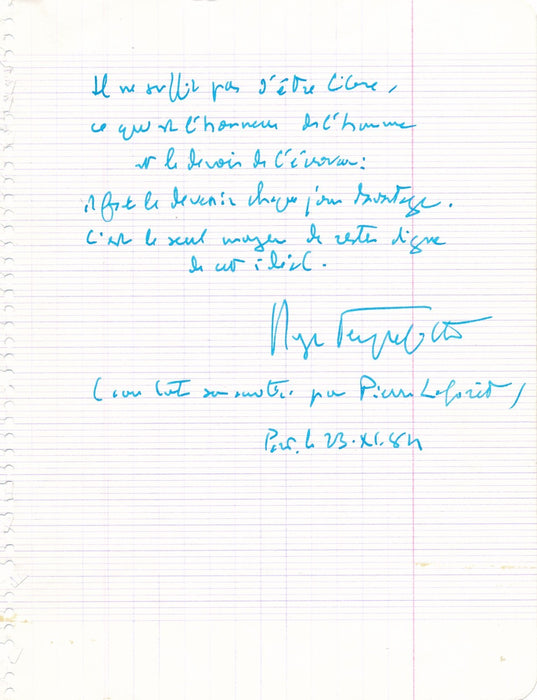 Il ne suffit pas d'être libre,
ce qui est l'honneur de l'homme
et le devoir de l'écrivain :
il faut le devenir chaque jour davantage.
C'est le seul moyen de rester digne
de cet idéal.
Roger Peyrefitte
par Pierre Laforêt)
Paris, le 23.XI.84